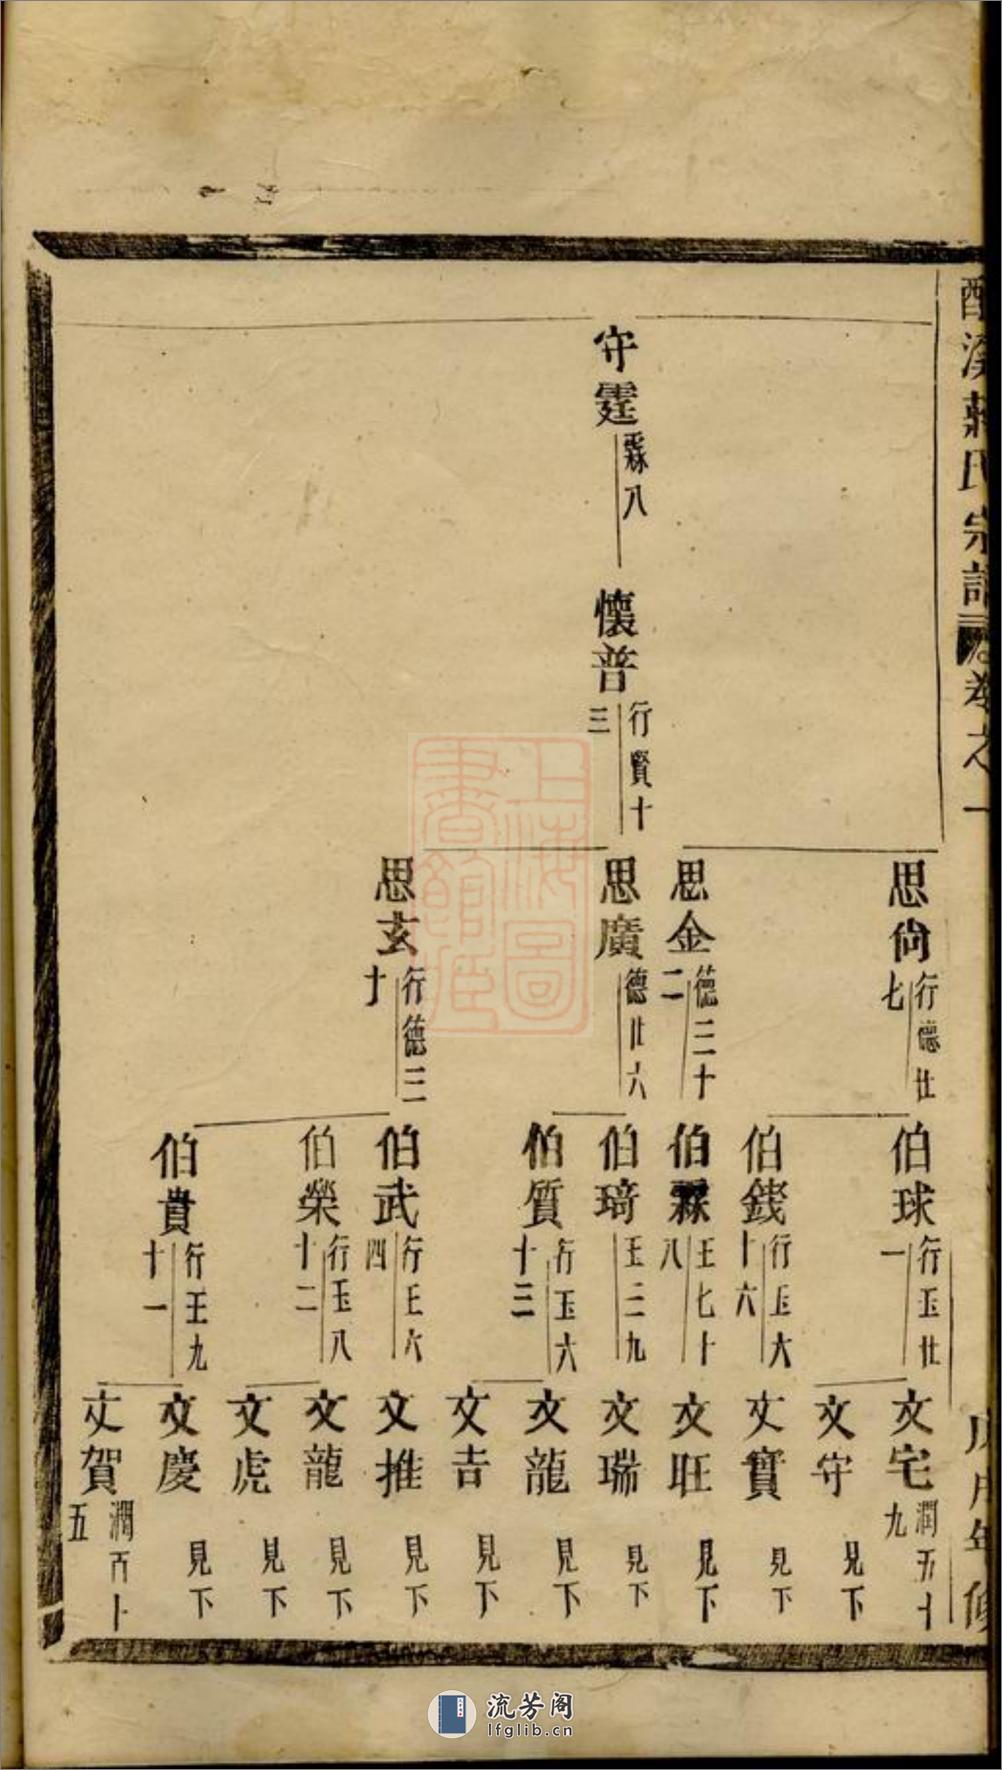 溪蔣氏宗譜
卷之一
戊戌年修
守霆 霖八
懷普 行賢十三
思尚 行德廿七
思金 德三十二
思廣 德廿六
思玄 行德三十
伯球 行玉廿一
伯錢 行玉六十六
伯霖 玉七十八
伯琦 玉三九
伯質 行玉六十三
伯武 行玉六四
伯榮 行玉八十二
伯貴 行玉九十一
文宅 潤五十九
文守 見下
文寶 見下
文旺 見下
文瑞 見下
文龍 見下
文吉 見下
文推 見下
文龍 見下
文虎 見下
文慶 見下
文賀 潤百十五
上海圖書館藏
流芳阁
lfglib.cn